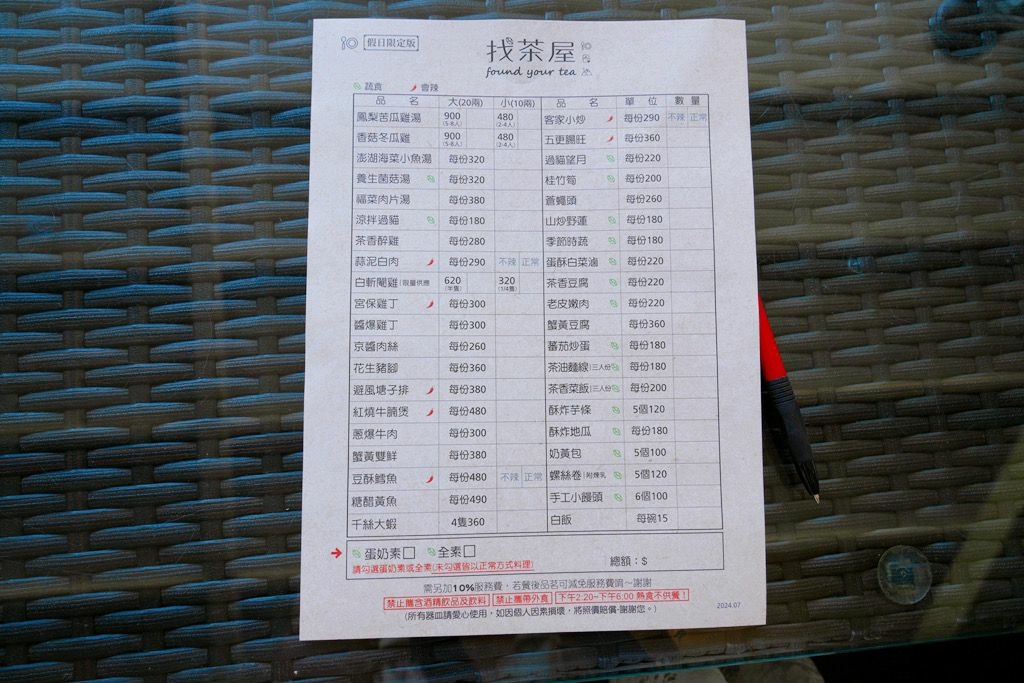 假日限定版
找茶屋
found your tea
蔬食 會辣
品名 大(20兩) 小(10兩) 品名 單位 數量
鳳梨苦瓜雞湯 900 (5-8人) 480 (2-4人) 客家小炒 每份290 不辣 正常
香菇冬瓜雞 900 (5-8人) 480 (2-4人) 五更腸旺 每份360
澎湖海菜小魚湯 每份320 過貓望月 每份220
養生菌菇湯 每份320 桂竹筍 每份200
福菜肉片湯 每份380 蒼蠅頭 每份260
涼拌過貓 每份180 山炒野蓮 每份180
茶香醉雞 每份280 季節時蔬 每份180
蒜泥白肉 每份290 不辣 正常 蛋酥白菜滷 每份220
白斬閹雞|限量供應 620 (半隻) 320 (1/4隻) 茶香豆腐 每份220
宮保雞丁 每份300 老皮嫩肉 每份220
醬爆雞丁 每份300 蟹黃豆腐 每份360
京醬肉絲 每份260 蕃茄炒蛋 每份180
花生豬腳 每份360 茶油麵線|三人份 每份180
避風塘子排 每份380 茶香菜飯|三人份 每份200
紅燒牛腩煲 每份480 酥炸芋條 5個120
蔥爆牛肉 每份300 酥炸地瓜 每份180
蟹黃雙鮮 每份380 奶黃包 5個100
豆酥鱈魚 每份480 不辣 正常 螺絲卷|附煉乳 5個120
糖醋黃魚 每份490 手工小饅頭 6個100
千絲大蝦 4隻360 白飯 每碗15
蛋奶素 全素
請勾選蛋奶素或全素(未勾選皆以正常方式料理) 總額：$
需另加10%服務費，若餐後品茗可減免服務費唷~謝謝
禁止攜含酒精飲品及飲料 禁止攜帶外食 下午2:20~下午6:00 熱食不供餐！
(所有器皿請愛心使用，如因個人因素損壞，將照價賠償-謝謝您。)
2024.07